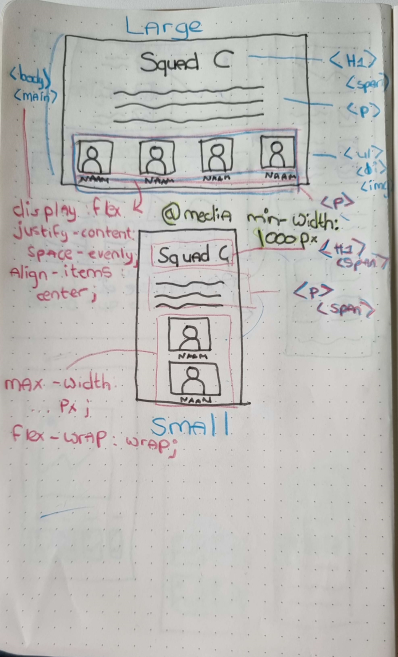 Large
Squad C
<H1>
<span>
<body>
<main>
<p>
<ul
<li>
<img
NAAM NAAM NAAM NAAM
<P>
display flex
justify-content
space-evenly;
Align-items:
center;
@media min-width:
1000px
Squad C
<H1>
<span>
<P>
<span>
NAAM
NAAM
max-width
... px;
flex-wrap: wrap;
Small